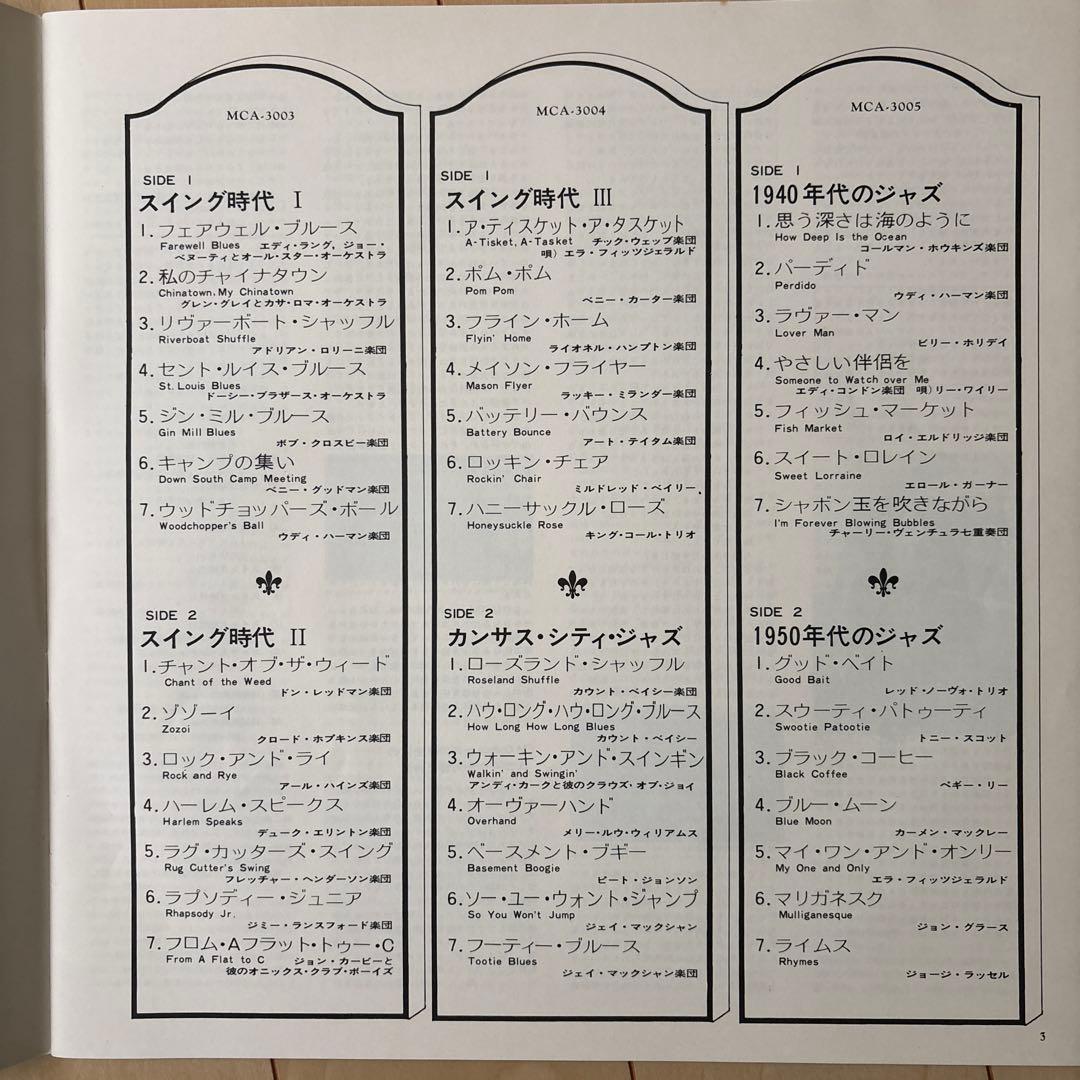 MCA-3003
SIDE 1
スイング時代 Ⅰ
1. フェアウェル・ブルース
Farewell Blues エディ・ラング, ジョー・
ベヌーティとオール・スター・オーケストラ
2. 私のチャイナタウン
Chinatown, My Chinatown
グレン・グレイとカサ・ロマ・オーケストラ
3. リヴァーボート・シャッフル
Riverboat Shuffle
アドリアン・ロリーニ楽団
4. セント・ルイス・ブルース
St. Louis Blues
ドーシー・ブラザース・オーケストラ
5. ジン・ミル・ブルース
Gin Mill Blues
ボブ・クロスビー楽団
6. キャンプの集い
Down South Camp Meeting
ベニー・グッドマン楽団
7. ウッドチョッパーズ・ボール
Woodchopper's Ball
ウディ・ハーマン楽団
SIDE 2
スイング時代 Ⅱ
1. チャント・オブ・ザ・ウィード
Chant of the Weed
ドン・レッドマン楽団
2. ゾゾーイ
Zozoi
クロード・ホプキンス楽団
3. ロック・アンド・ライ
Rock and Rye
アール・ハインズ楽団
4. ハーレム・スピークス
Harlem Speaks
デューク・エリントン楽団
5. ラグ・カッターズ・スイング
Rug Cutter's Swing
フレッチャー・ヘンダーソン楽団
6. ラプソディー・ジュニア
Rhapsody Jr.
ジミー・ランスフォード楽団
7. フロム・Aフラット・トゥー・C
From A Flat to C ジョン・カービーと
彼のオニックス・クラブ・ボーイズ
MCA-3004
SIDE 1
スイング時代 Ⅲ
1. ア・ティスケット・ア・タスケット
A-Tisket, A-Tasket チック・ウェップ楽団
唄) エラ・フィッツジェラルド
2. ポム・ポム
Pom Pom
ベニー・カーター楽団
3. フライン・ホーム
Flyin' Home
ライオネル・ハンプトン楽団
4. メイソン・フライヤー
Mason Flyer
ラッキー・ミランダー楽団
5. バッテリー・バウンス
Battery Bounce
アート・テイタム楽団
6. ロッキン・チェア
Rockin' Chair
ミルドレッド・ベイリー
7. ハニーサックル・ローズ
Honeysuckle Rose
キング・コール・トリオ
SIDE 2
カンサス・シティ・ジャズ
1. ローズランド・シャッフル
Roseland Shuffle
カウント・ベイシー楽団
2. ハウ・ロング・ハウ・ロング・ブルース
How Long How Long Blues
カウント・ベイシー
3. ウォーキン・アンド・スインギン
Walkin' and Swingin'
アンディ・カークと彼のクラウズ・オブ・ジョイ
4. オーヴァーハンド
Overhand
メリー・ルウ・ウィリアムス
5. ベースメント・ブギー
Basement Boogie
ピート・ジョンソン
6. ソー・ユー・ウォント・ジャンプ
So You Won't Jump
ジェイ・マックシャン
7. フーティー・ブルース
Tootie Blues
ジェイ・マックシャン楽団
MCA-3005
SIDE 1
1940年代のジャズ
1. 思う深さは海のように
How Deep Is the Ocean
コールマン・ホウキンズ楽団
2. パーディド
Perdido
ウディ・ハーマン楽団
3. ラヴァー・マン
Lover Man
ビリー・ホリデイ
4. やさしい伴侶を
Someone to Watch over Me
エディ・コンドン楽団 唄) リー・ワイリー
5. フィッシュ・マーケット
Fish Market
ロイ・エルドリッジ楽団
6. スイート・ロレイン
Sweet Lorraine
エロール・ガーナー
7. シャボン玉を吹きながら
I'm Forever Blowing Bubbles
チャーリー・ヴェンチュラ七重奏団
SIDE 2
1950年代のジャズ
1. グッド・ベイト
Good Bait
レッド・ノーヴォ・トリオ
2. スウーティ・パトゥーティ
Swootie Patootie
トニー・スコット
3. ブラック・コーヒー
Black Coffee
ペギー・リー
4. ブルー・ムーン
Blue Moon
カーメン・マックレー
5. マイ・ワン・アンド・オンリー
My One and Only
エラ・フィッツジェラルド
6. マリガネスク
Mulliganesque
ジョン・グラース
7. ライムス
Rhymes
ジョージ・ラッセル
3